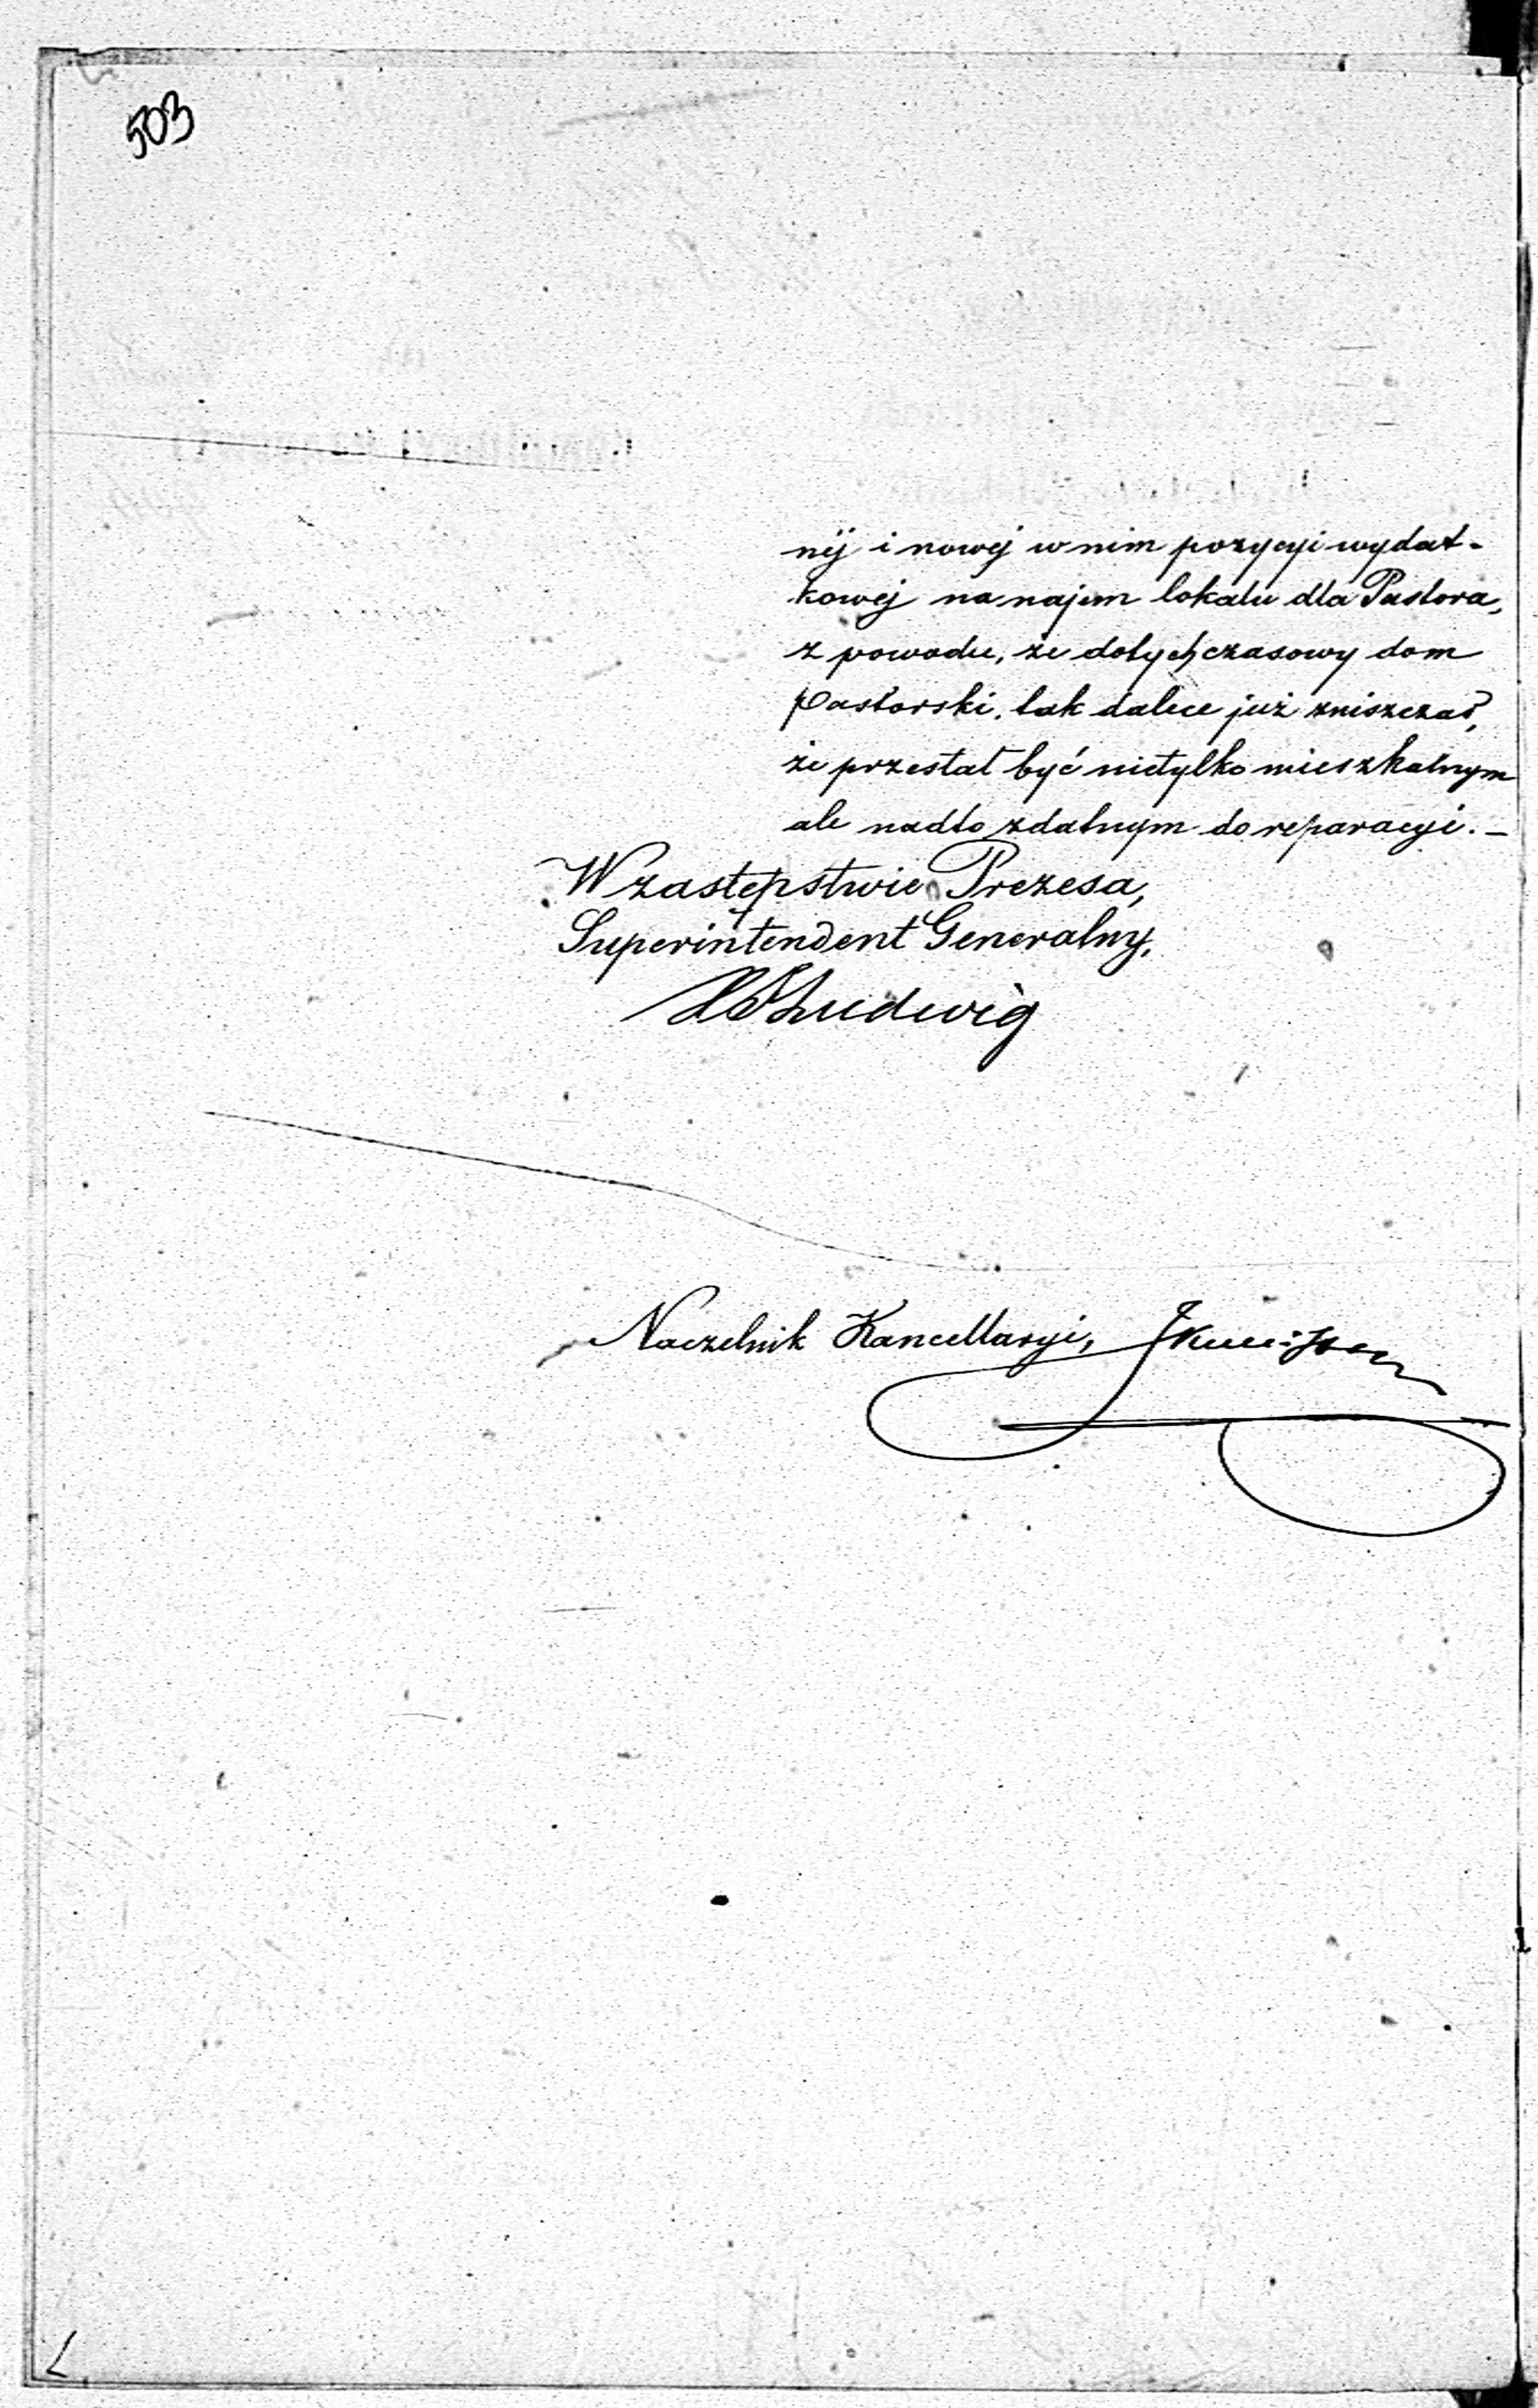 503
nej i nowej w nim pozycyi wydat-
kowej na najem lokalu dla Pastora,
z powodu, że dotychczasowy dom
Pastorski, tak dalece już zniszczał,
że przestał być nietylko mieszkalnym
ale nadto zdatnym do reparacyi. –
W zastępstwie Prezesa,
Superintendent Generalny,
Ludwig
Naczelnik Kancellaryi,